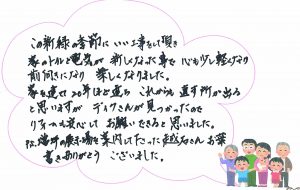 この新緑の季節に いい工事をして頂き
家のトイレと電気が 新しくなった事で 心も少し軽くなり
前向きになり 楽しくなりました。
家を建て 20年ほど建ち これからも 直す所が出る
と思いますが ディクさんが見つかったので
リフォームも安心して お願いできると思いました。
P.S. 端坪の展示場を案内して下さった 越智さん お葉
書きありがとう ございました。